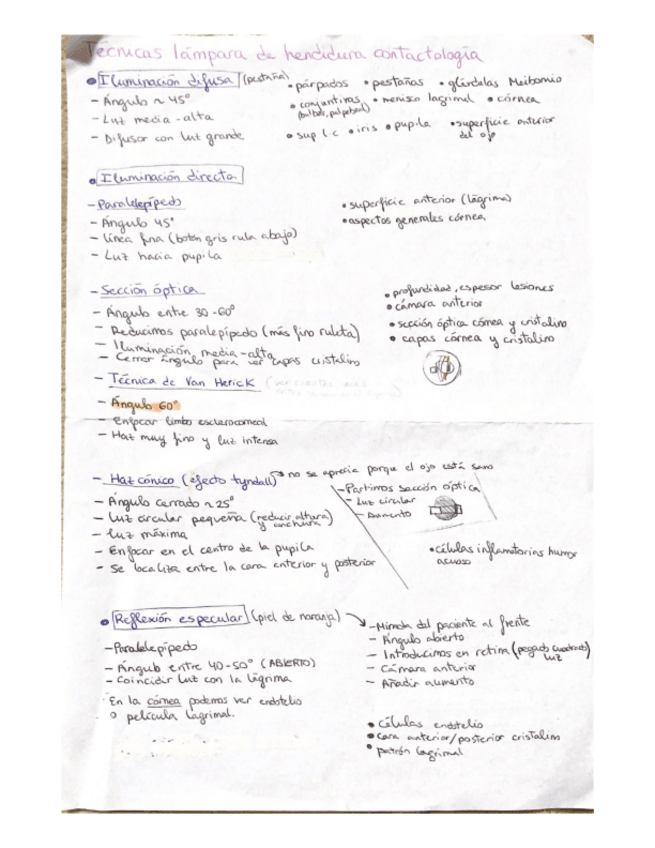 Técnicas lámpara de hendidura contactología
• Iluminación difusa (pestaña)
- Ángulo ~ 45°
- Luz media-alta
- Difusor con luz grande
• párpados • pestañas • glándulas Meibomio
• conjuntivas (bulbar, palpebral) • menisco lagrimal • córnea
• sup lc • iris • pupila • superficie anterior del ojo
• Iluminación directa
- Paralelepípedo
- Ángulo 45°
- línea fina (botón gris rula abajo)
- Luz hacia pupila
• superficie anterior (lágrima)
• aspectos generales córnea
- Sección óptica
- Ángulo entre 30-60°
- Reducimos paralepípedo (más fino ruleta)
- Iluminación media-alta
- Cerrar ángulo para ver capas cristalino
• profundidad, espesor lesiones
• cámara anterior
• sección óptica córnea y cristalino
• capas córnea y cristalino
- Técnica de Van Herick
- Ángulo 60°
- Enfocar limbo esclerocorneal
- Haz muy fino y luz intensa
- Haz cónico (efecto tyndall) → no se aprecia porque el ojo está sano
- Ángulo cerrado ~ 25°
- Luz circular pequeña (reducir altura y anchura)
- luz máxima
- Enfocar en el centro de la pupila
- Se localiza entre la cara anterior y posterior
- Partimos sección óptica
- Luz circular
- Aumento
• células inflamatorias humor acuoso
• Reflexión especular (piel de naranja)
- Paralelepípedo
- Ángulo entre 40-50° (ABIERTO)
- Coincidir luz con la lágrima
En la córnea podemos ver endotelio
o película lagrimal.
→ - Mirada del paciente al frente
- Ángulo abierto
- Introducimos en retina (pegado cuadrado luz)
- Cámara anterior
- Añadir aumento
• células endotelio
• cara anterior/posterior cristalino
• patrón lagrimal